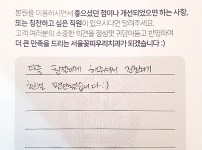 본원을 이용하시면서 좋으셨던 점이나 개선되었으면 하는 사항,
또는 칭찬하고 싶은 직원이 있으시다면 말려주세요.
고객 여러분의 소중한 의견을 정성껏 귀담아듣고 반영하여
더 큰 만족을 드리는 서울꽃피우리치과가 되겠습니다 :)
다들 친절하게 해주셔서 진료받기
한결 편안했습니다 :)